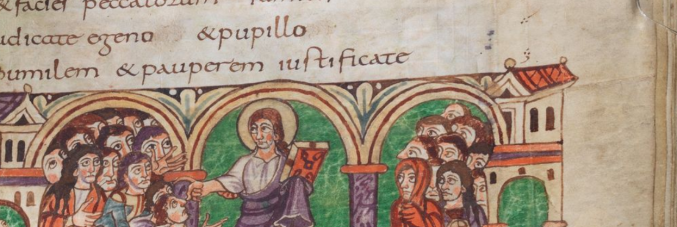 & faciei peccatorum
udicate egeno & pupillo
humilem & pauperem iustificate